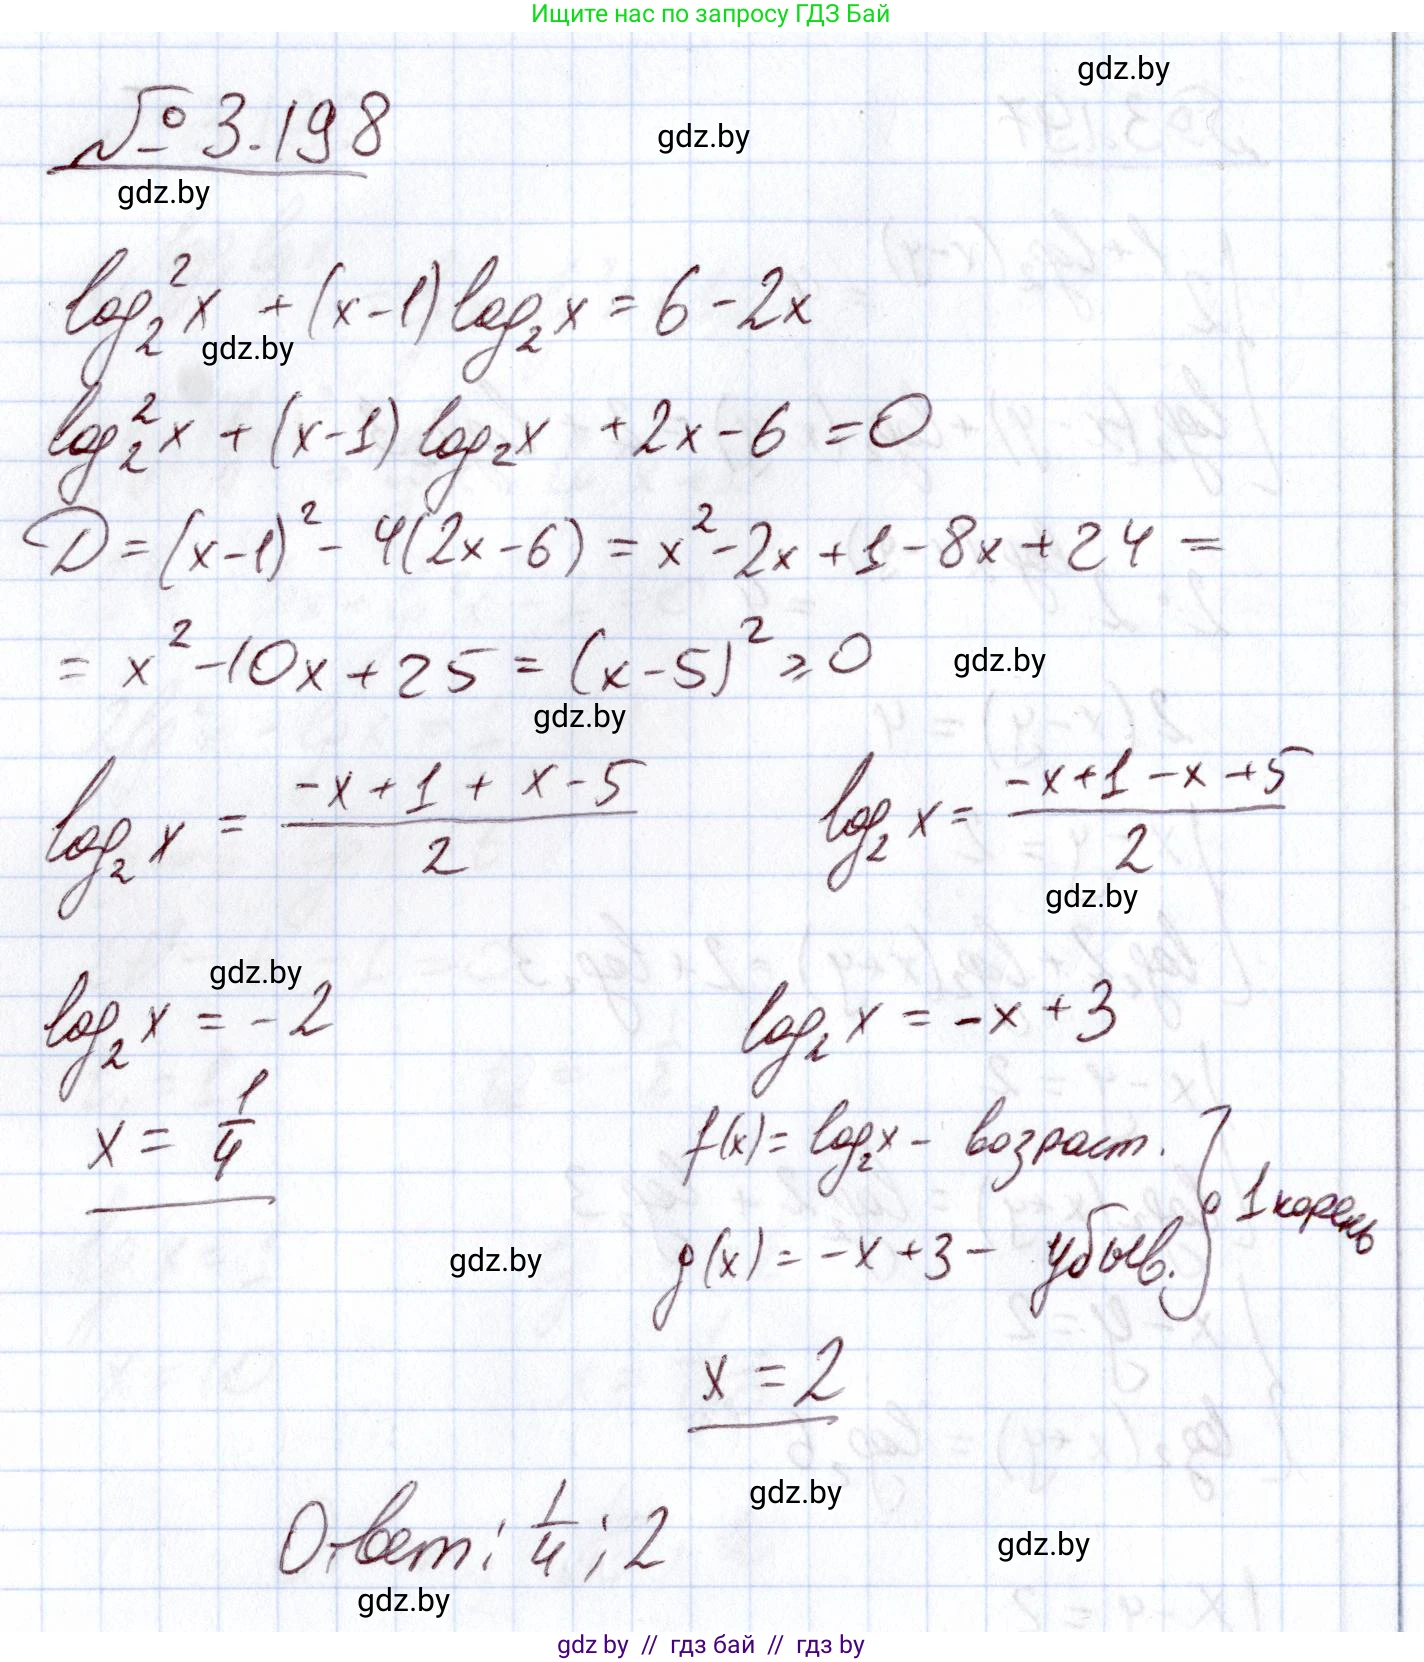 Ищите нас по запросу ГДЗ Бай
gdz.by
№ 3.198
gdz.by
gdz.by
log₂²x + (x-1) log₂x = 6 - 2x
gdz.by
log₂²x + (x-1) log₂x + 2x - 6 = 0
D = (x-1)² - 4(2x-6) = x² - 2x + 1 - 8x + 24 =
= x² - 10x + 25 = (x-5)² ≥ 0
gdz.by
gdz.by
log₂x = (-x+1+x-5)/2 log₂x = (-x+1-x+5)/2
gdz.by
gdz.by
log₂x = -2 log₂x = -x+3
x = 1/4 f(x) = log₂x - возраст. } 1 корень
gdz.by g(x) = -x+3 - убыв.
x = 2
gdz.by
Ответ: 1/4; 2
gdz.by
gdz.by
gdz by // гдз бай // гдз by